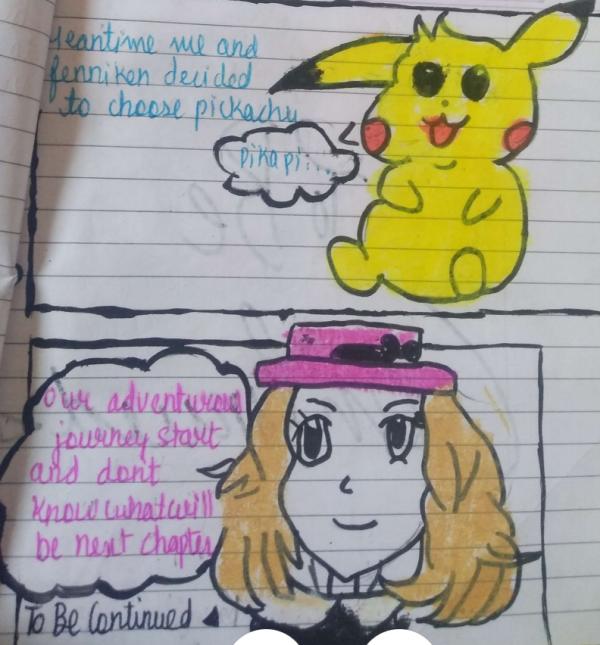 Meantime me and
fenniken decided
to choose pickachu
Pikapi:...
Our adventurous
journey start
and dont
know what will
be next chapter
To Be Continued